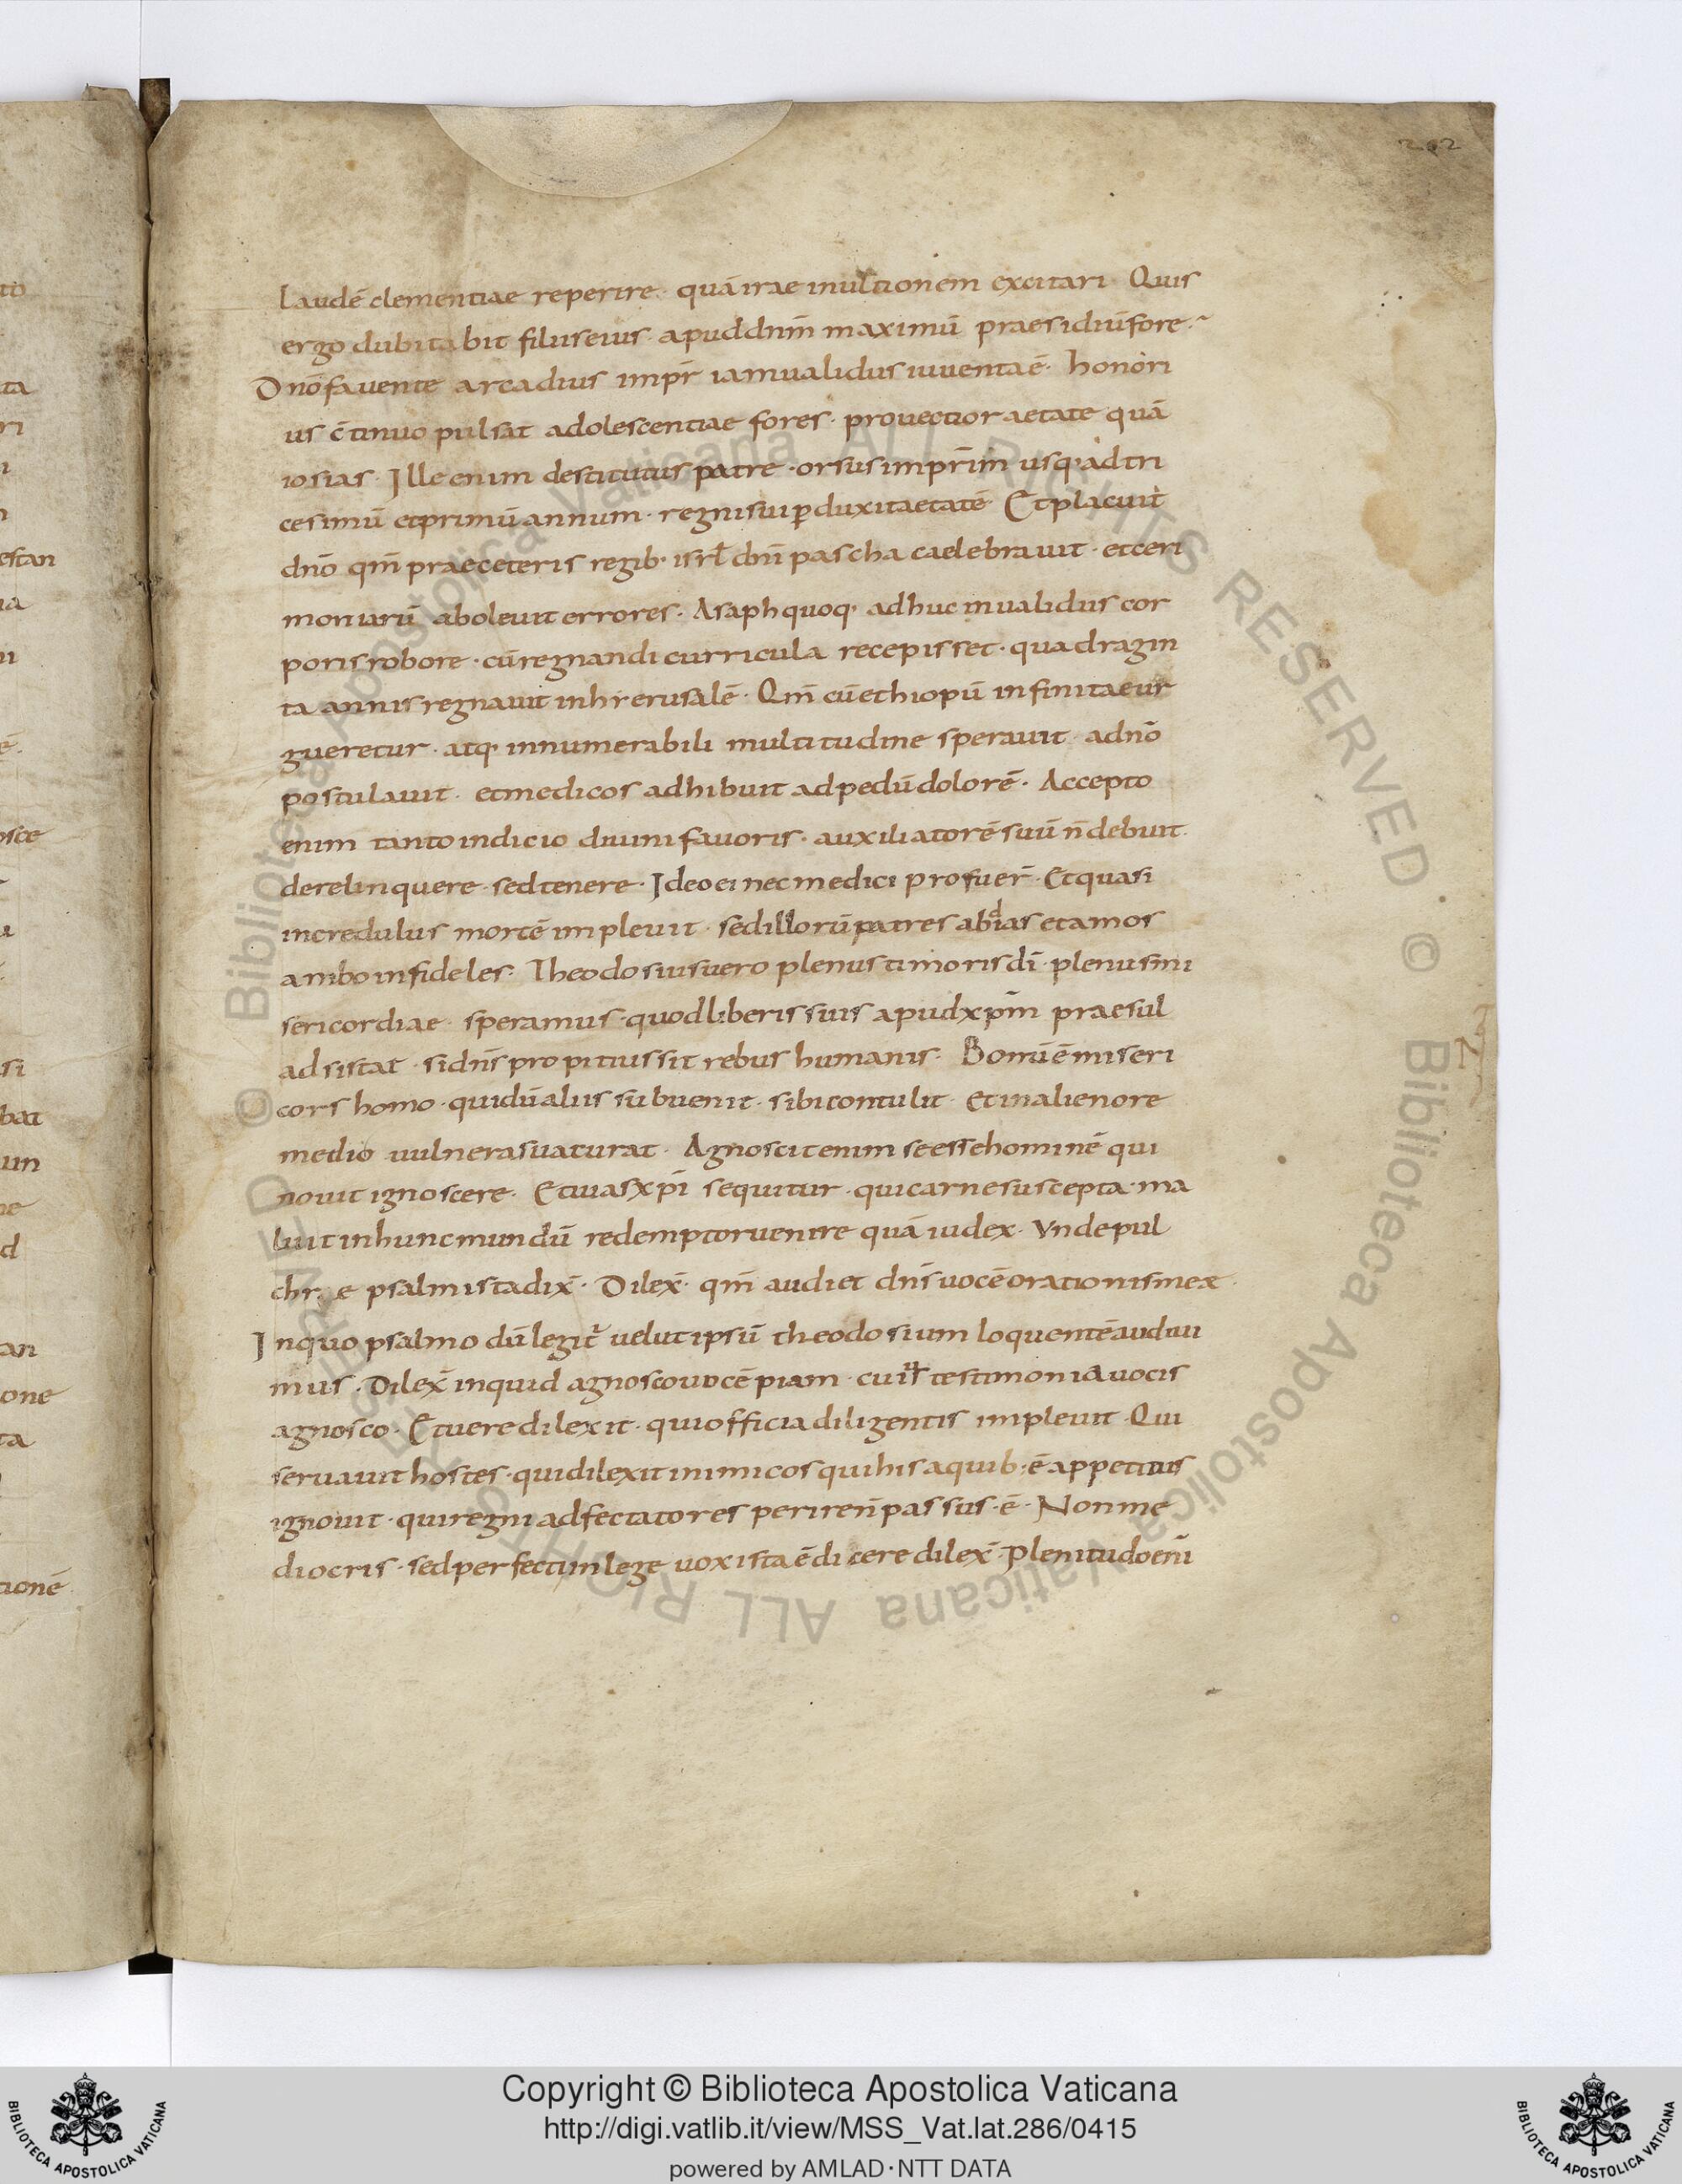 202
Laudē clementiae reperire · quā irae inultionem excitari · Quis
ergo dubitabit filiis eius · apud dnm̄ maximū praesidiū fore ·
Dnō favente arcadius impr̄ iam validus iuventa ē · honori
us c̄tinuo pulsat adolescentiae fores · provectior aetate quā
iosias · Ille enim destitutus patre · orsus imprīm usq· ad tri
cesimū et primū annum · regni sui perduxit aetatē · Et placuit
dnō qm̄ prae ceteris regib· isrł dnī pascha caelebravit · et ceri
moniarū abolevit errores · Asaph quoq· adhuc invalidus cor
poris robore · cū regnandi curricula recepisset · quadragin
ta annis regnavit in hierusalē · Qm̄ cū ethiopū infinita eur
gueretur · atq· innumerabili multitudine speravit · adnō
postulavit · et medicos adhibuit ad pedū dolorē · Accepto
enim tanto indicio divini favoris · auxiliatorē suū n̄ debuit
derelinquere · sed tenere · Ideo ei nec medici profuer̄ · Et quasi
incredulus mortē implevit · sed illorū patres abdias et amos
ambo infideles · Theodosius vero plenus timoris dī · plenus mi
sericordiae · speramus · quod liberis suis apud xpm̄ praesul
adsistat · si dns̄ propitius sit rebus humanis · Bonū ē miseri
cors homo · qui dū aliis subvenit · sibi contulit · Et in alieno re
medio vulnera sua curat · Agnoscit enim se esse hominē qui
novit ignoscere · Et vias xpī sequitur · qui carne suscepta · ma
luit in hunc mundū redemptor venire quā iudex · Unde pul
chr e psalmista dix̄ · Dilex̄ · qm̄ audiet dns̄ vocē orationis meae
In quo psalmo dū legit̄ velut ipsū theodosium loquentē audivi
mus · Dilex̄ inquid agnosco vocē piam · cui testimonia vocis
agnosco · Et vere dilexit · qui officia diligentis implevit · Qui
servavit hostes · qui dilexit inimicos qui his a quib· ē appetitus
ignovit · qui regni adfectatores perire n̄ passus · ē · Non me
diocris · sed perfecti in lege vox ista ē dicere dilex̄ · Plenitudo enī
© Biblioteca Apostolica Vaticana ALL RIGHTS RESERVED · © Biblioteca Apostolica Vaticana ALL RIGHTS RESERVED
Copyright © Biblioteca Apostolica Vaticana
http://digi.vatlib.it/view/MSS_Vat.lat.286/0415
powered by AMLAD·NTT DATA
BIBLIOTECA APOSTOLICA VATICANA
BIBLIOTECA APOSTOLICA VATICANA